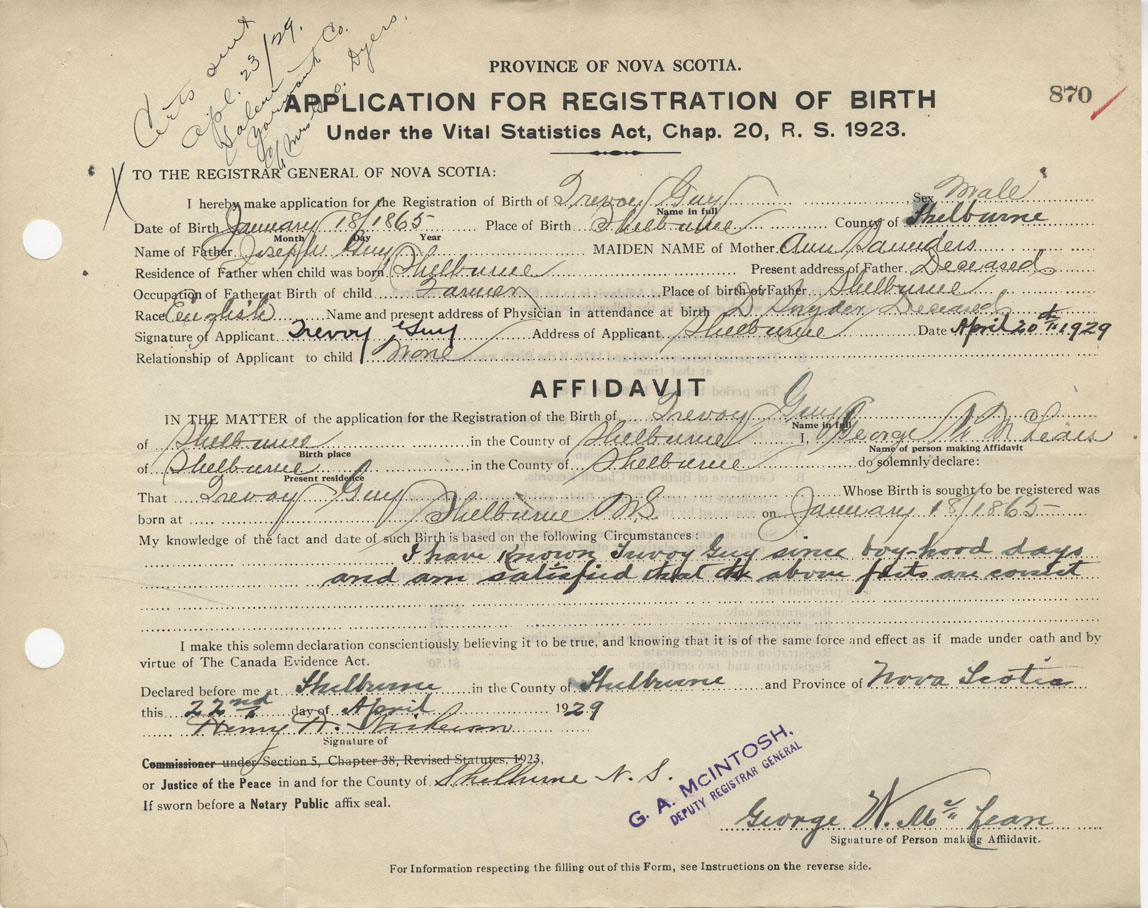 Certs sent
Apl. 23/29.
Salem
Yarmouth Co.
c/o Mrs. Dyers.
PROVINCE OF NOVA SCOTIA.
APPLICATION FOR REGISTRATION OF BIRTH
870
Under the Vital Statistics Act, Chap. 20, R. S. 1923.
TO THE REGISTRAR GENERAL OF NOVA SCOTIA:
I hereby make application for the Registration of Birth of Trevoy Guy Sex Male
Name in full
Date of Birth January 18/1865 Place of Birth Shelburne County of Shelburne
Month Day Year
Name of Father Joseph Guy MAIDEN NAME of Mother Ann Saunders
Residence of Father when child was born Shelburne Present address of Father Deceased
Occupation of Father at Birth of child Farmer Place of birth of Father Shelburne
Race English Name and present address of Physician in attendance at birth D. Snyder Deceased
Signature of Applicant Trevoy Guy Address of Applicant Shelburne Date April 20th 1929
Relationship of Applicant to child None
AFFIDAVIT
IN THE MATTER of the application for the Registration of the Birth of Trevoy Guy
Name in full
of Shelburne in the County of Shelburne I, George W McLean
Birth place Name of person making Affidavit
of Shelburne in the County of Shelburne do solemnly declare:
Present residence
That Trevoy Guy Whose Birth is sought to be registered was
born at Shelburne N.S. on January 18/1865
My knowledge of the fact and date of such Birth is based on the following Circumstances:
I have known Trevoy Guy since boy-hood days
and am satisfied that the above facts are correct
I make this solemn declaration conscientiously believing it to be true, and knowing that it is of the same force and effect as if made under oath and by
virtue of The Canada Evidence Act.
Declared before me at Shelburne in the County of Shelburne and Province of Nova Scotia
this 22nd day of April 1929
Henry W.
Signature of
Commissioner under Section 5, Chapter 38, Revised Statutes, 1923,
or Justice of the Peace in and for the County of Shelburne N. S.
If sworn before a Notary Public affix seal.
G. A. McINTOSH,
DEPUTY REGISTRAR GENERAL
George W. McLean
Signature of Person making Affidavit.
For Information respecting the filling out of this Form, see Instructions on the reverse side.